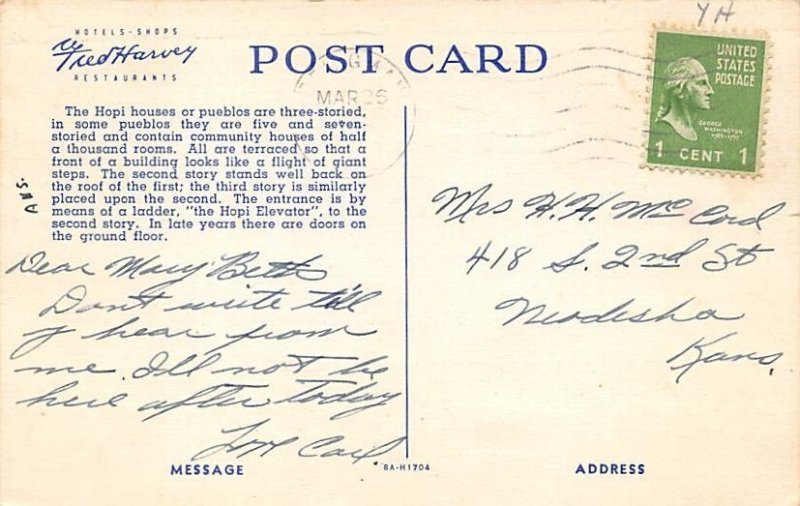 HOTELS - SHOPS
Fred Harvey
RESTAURANTS
POST CARD
The Hopi houses or pueblos are three-storied,
in some pueblos they are five and seven-
storied and contain community houses of half
a thousand rooms. All are terraced so that a
front of a building looks like a flight of giant
steps. The second story stands well back on
the roof of the first; the third story is similarly
placed upon the second. The entrance is by
means of a ladder, "the Hopi Elevator", to the
second story. In late years there are doors on
the ground floor.
Ans.
Dear Mary Betts
Don't write till
y hear from
me. I'll not be
here after today
Love Carl
MESSAGE
8A-H1704
MAR 26
YH
UNITED
STATES
POSTAGE
GEORGE
WASHINGTON
1789-1797
1 CENT 1
Mrs H. H. McCord
418 S. 2nd St
Neodesha
Kans.
ADDRESS